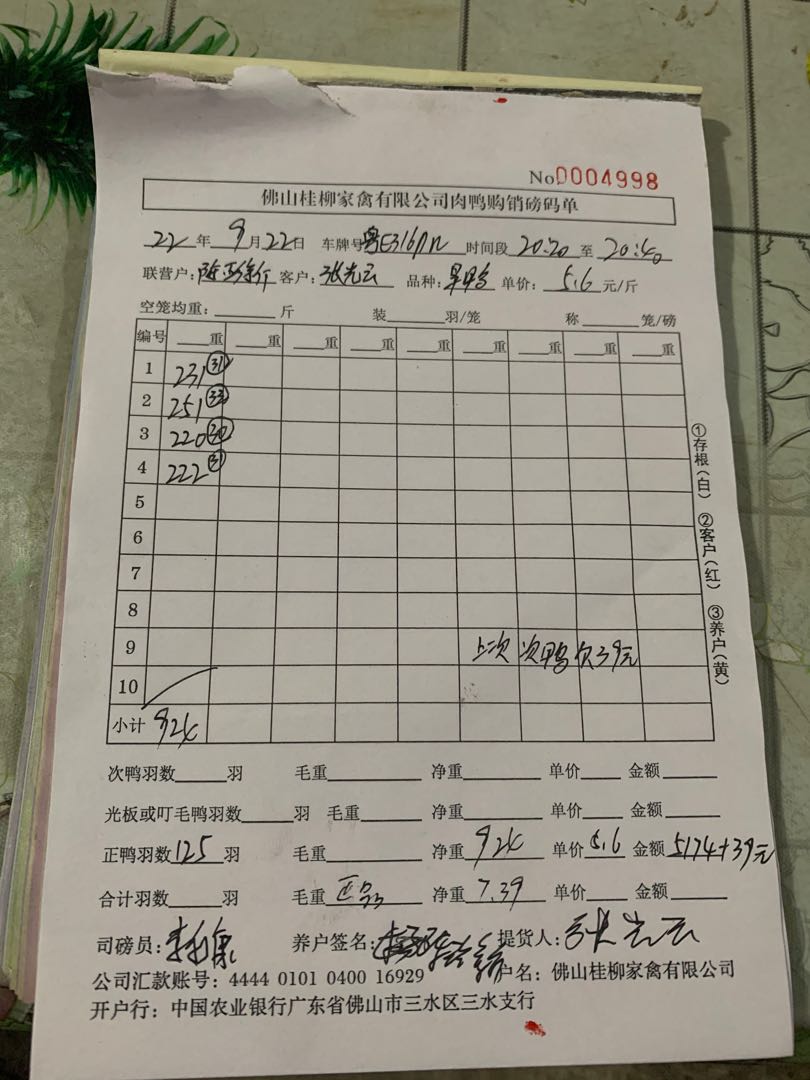 No 0004998
佛山桂柳家禽有限公司肉鸭购销磅码单
22年9月22日 车牌号 时间段20:20至20:40
联营户: 客户:张光云 品种: 单价:5.6元/斤
空笼均重:______斤 装______羽/笼 称______笼/磅
编号 ___重 ___重 ___重 ___重 ___重 ___重 ___重 ___重 ___重
1 231 31
2 251 33
3 220 30
4 222 31
5
6
7
8
9 上次 次鸭欠39元
10
小计 924
次鸭羽数_____羽 毛重______ 净重______ 单价____ 金额____
光板或叮毛鸭羽数_____羽 毛重______ 净重______ 单价____ 金额____
正鸭羽数125羽 毛重______ 净重924 单价5.6 金额5174+39元
合计羽数_____羽 毛重正品 净重7.39 单价____ 金额____
司磅员: 养户签名: 提货人:张光云
公司汇款账号:4444 0101 0400 16929 户名:佛山桂柳家禽有限公司
开户行:中国农业银行广东省佛山市三水区三水支行
①存根(白) ②客户(红) ③养户(黄)